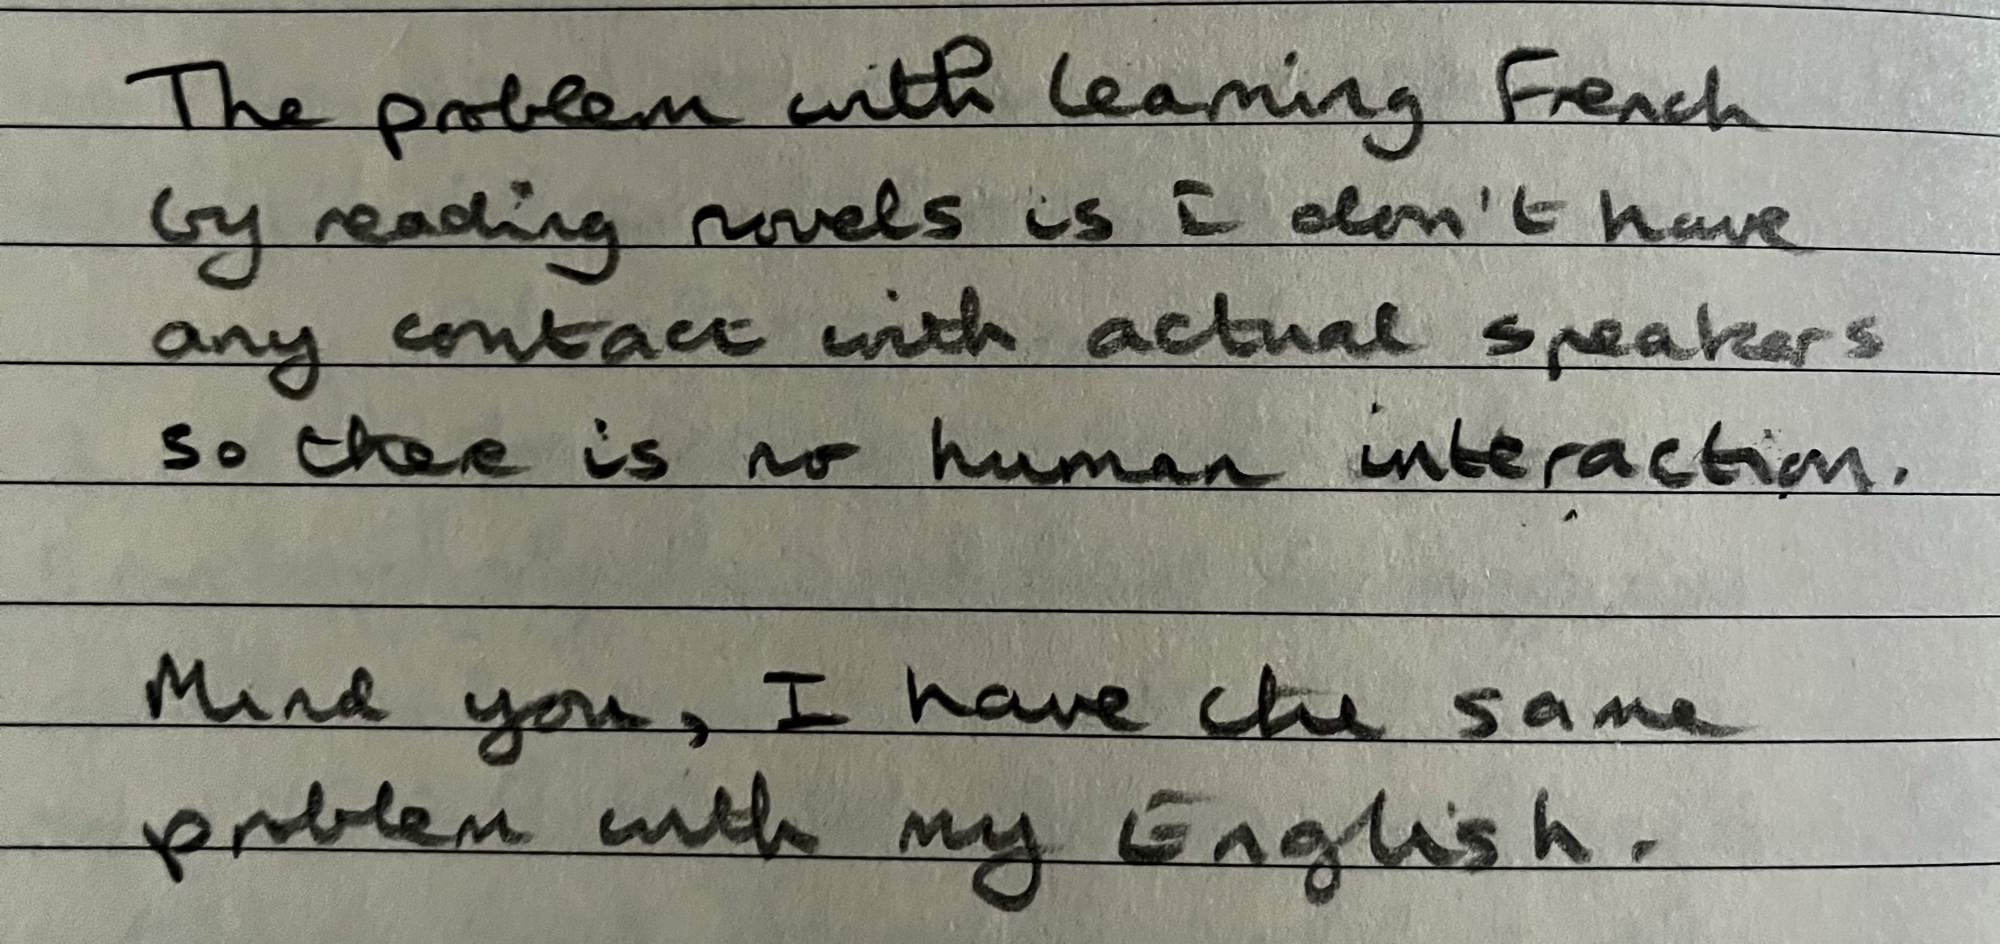 The problem with learning French
by reading novels is I don't have
any contact with actual speakers
so there is no human interaction.
Mind you, I have the same
problem with my English.